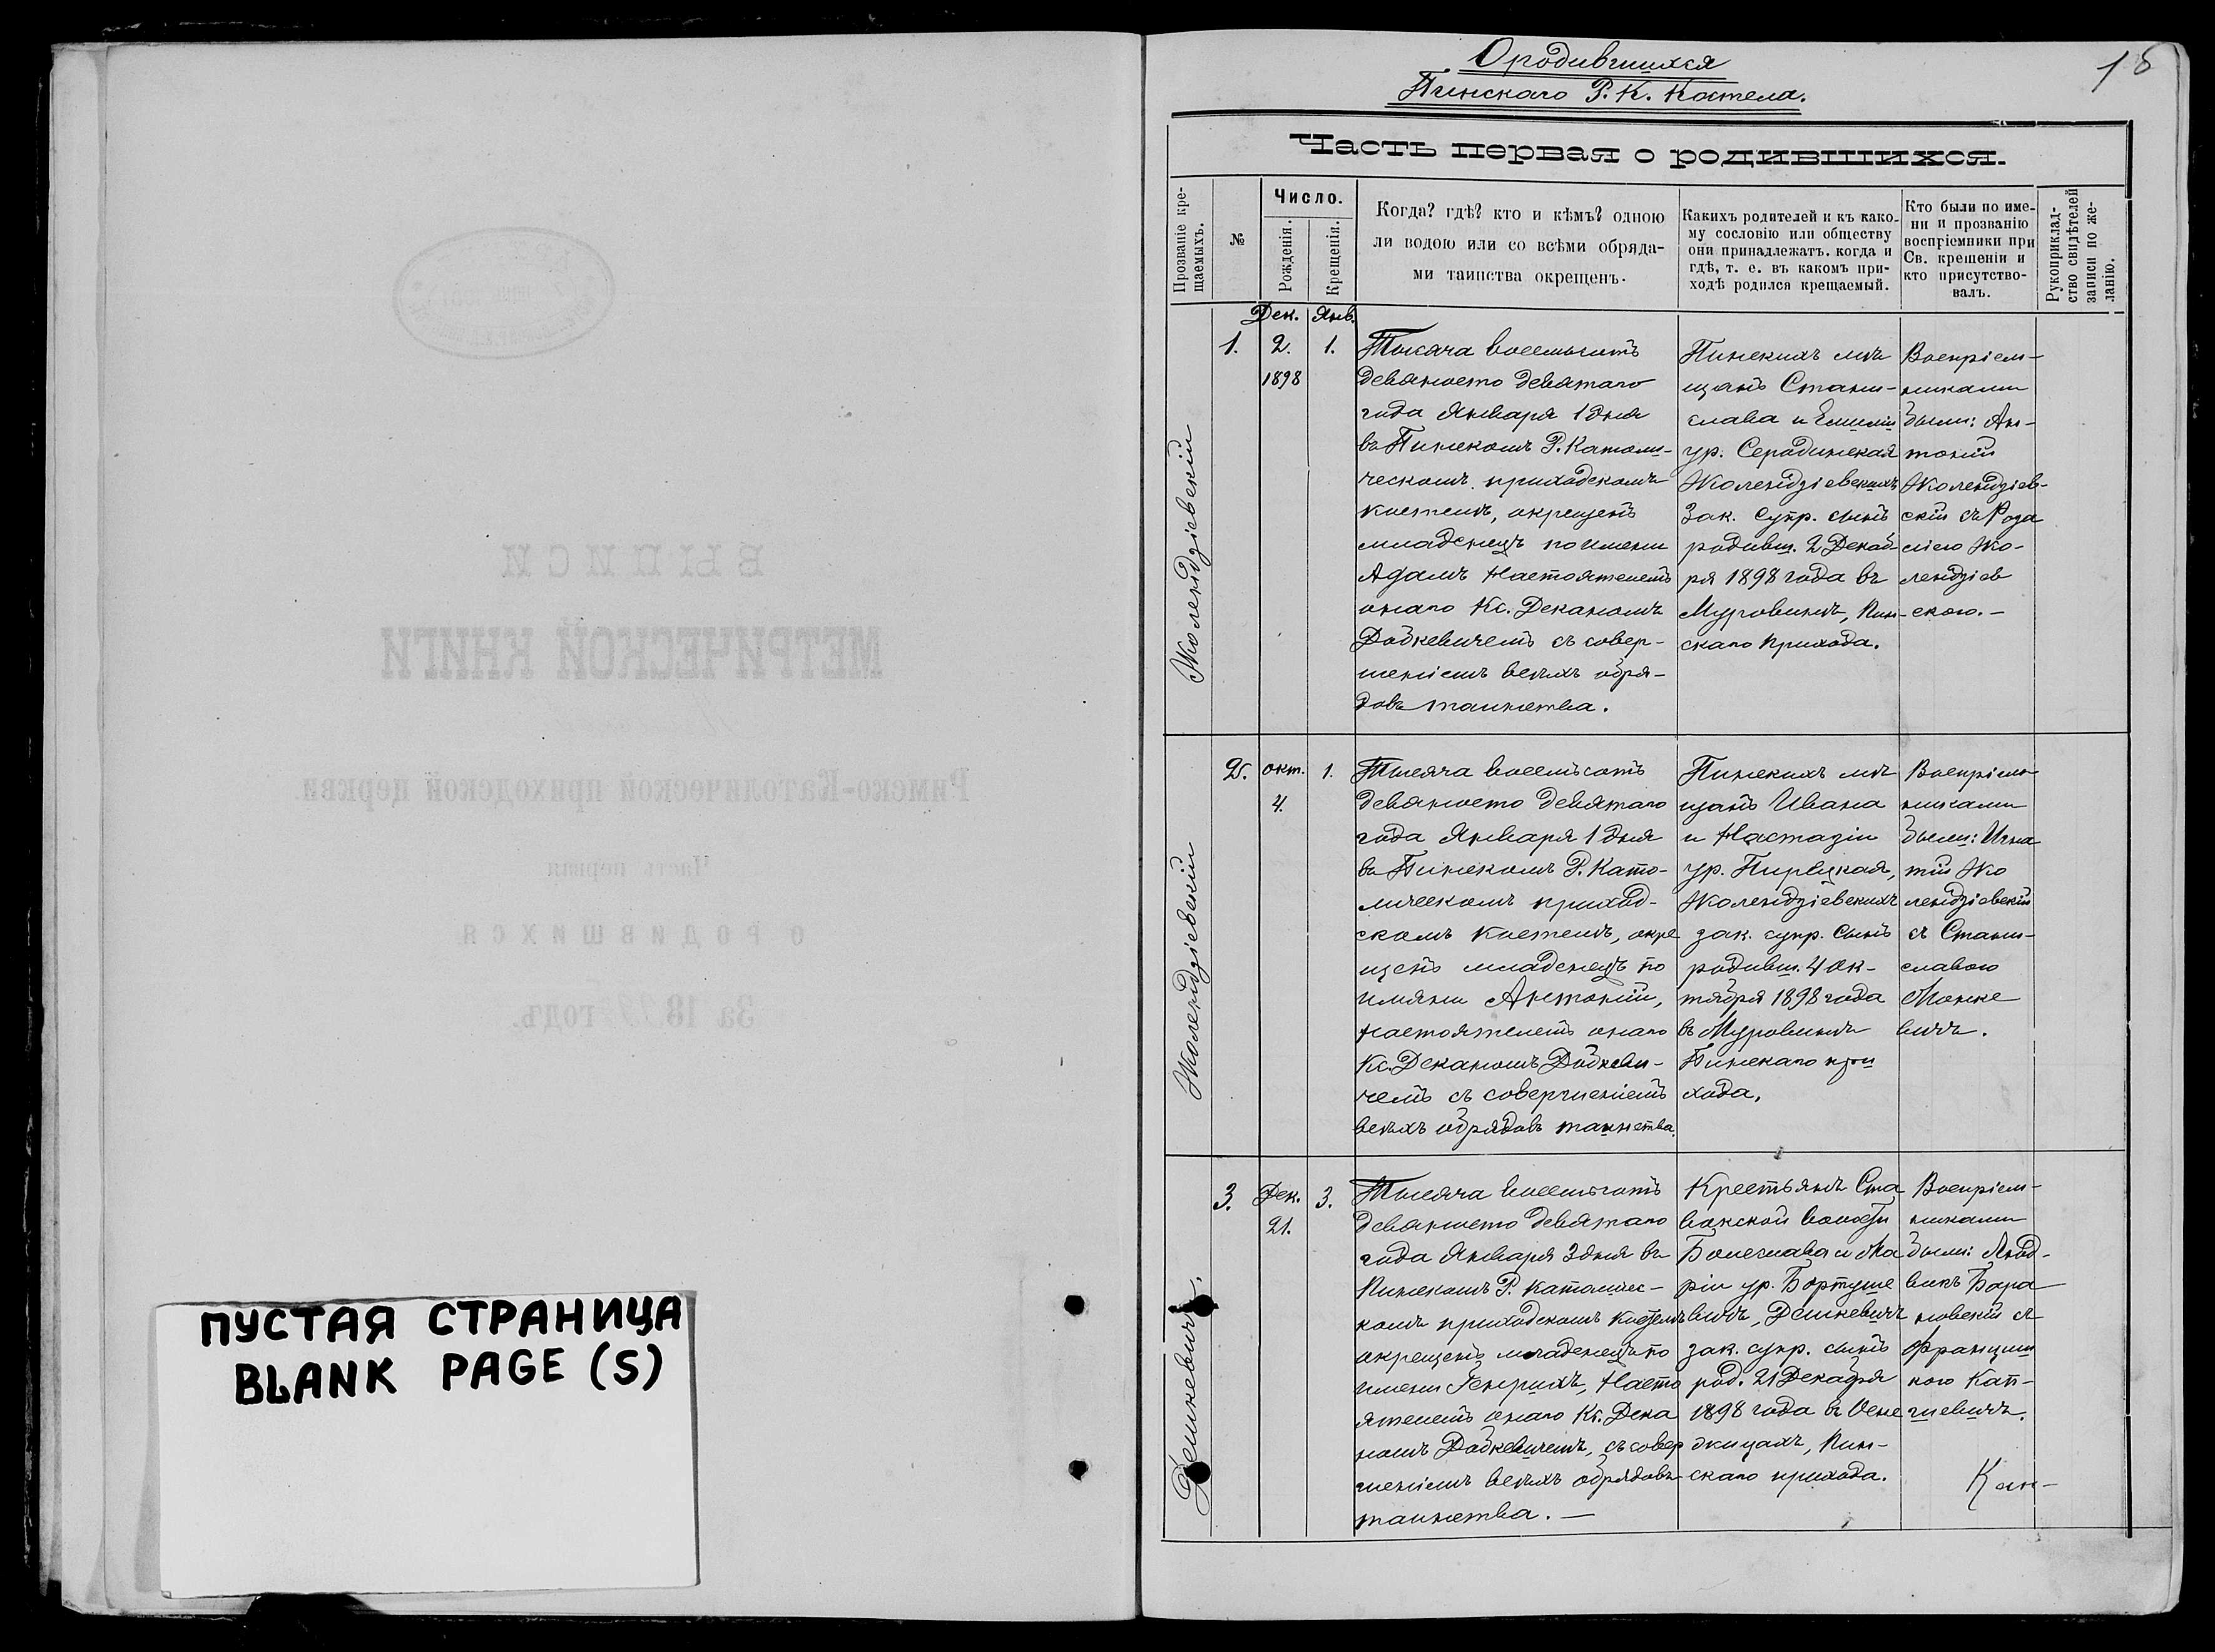 ПУСТАЯ СТРАНИЦА
BLANK PAGE (S)
О родившихся
Пинскаго Р. К. Костела.
Часть первая о родившихся.
Прозваніе кре-
щаемыхъ.
№
Число.
Рожденія.
Крещенія.
Когда? гдѣ? кто и кѣмъ? одною
ли водою или со всѣми обряда-
ми таинства окрещенъ.
Какихъ родителей и къ како-
му сословію или обществу
они принадлежатъ. когда и
гдѣ, т. е. въ какомъ при-
ходѣ родился крещаемый.
Кто были по име-
ни и прозванію
воспріемники при
Св. крещеніи и
кто присутство-
валъ.
Рукоприклад-
ство свидѣтелей
записи по же-
ланію.
Жолендзіевскій
1.
Дек.
2.
1898
Янв.
1.
Тысяча восемьсотъ
девяносто девятаго
года Января 1 дня
въ Пинскомъ Р. Католи-
ческомъ приходскомъ
костелѣ, окрещенъ
младенецъ по имени
Адамъ Настоятелемъ
онаго Кс. Деканомъ
Добкевичемъ съ совер-
шеніемъ всѣхъ обря-
довъ таинства.
Пинскихъ мѣ
щанъ Стани-
слава и Емиліи
ур. Серединская
Жолендзіевскихъ
Зак. Супр. сынъ
родивш. 2 Декаб-
ря 1898 года въ
Муровинѣ, Пин-
скаго прихода.
Воспріем-
никами
были: Ан-
тоній
Жолендзіев-
скій съ Роза
ліею Жо-
лендзіев
скою.-
Жолендзіевскій
2.
окт.
4.
1.
Тысяча восемьсотъ
девяносто девятаго
года Января 1 дня
въ Пинскомъ Р. Като-
лическомъ приход-
скомъ костелѣ, окре
щенъ младенецъ по
имяни Антоній,
настоятелемъ онаго
Кс. Деканомъ Добкеви-
чемъ съ совершеніемъ
всѣхъ обрядовъ таинства.
Пинскихъ мѣ
щанъ Ивана
и Настазіи
ур.
Жолендзіевскихъ
зак. супр. сынъ
родивш. 4 ок-
тября 1898 года
въ Муровинѣ
Пинскаго при
хода.
Воспріем
никами
были: Игна
тій Жо
лендзіевскій
съ Стани-
славою
вичъ.
3.
Дек.
21.
3.
Тысяча восемьсотъ
девяносто девятаго
года Января 3 дня въ
Пинскомъ Р. Католичес-
комъ приходскомъ костелѣ
окрещенъ младенецъ по
имени Генрихъ, Насто
ятелемъ онаго Кс. Дека
номъ Добкевичемъ, съ совер
шеніемъ всѣхъ обрядовъ
таинства. —
Крестьянъ Ста
вокской волости
Болеслава и Ма
ріи ур. Бортуше
вичъ,
зак. супр. сынъ
род. 21 Декабря
1898 года въ
Пин-
скаго прихода.
Воспріем-
никами
были: Люд-
викъ Бара
новскій съ
Францыш
кою Кап-
Кан-